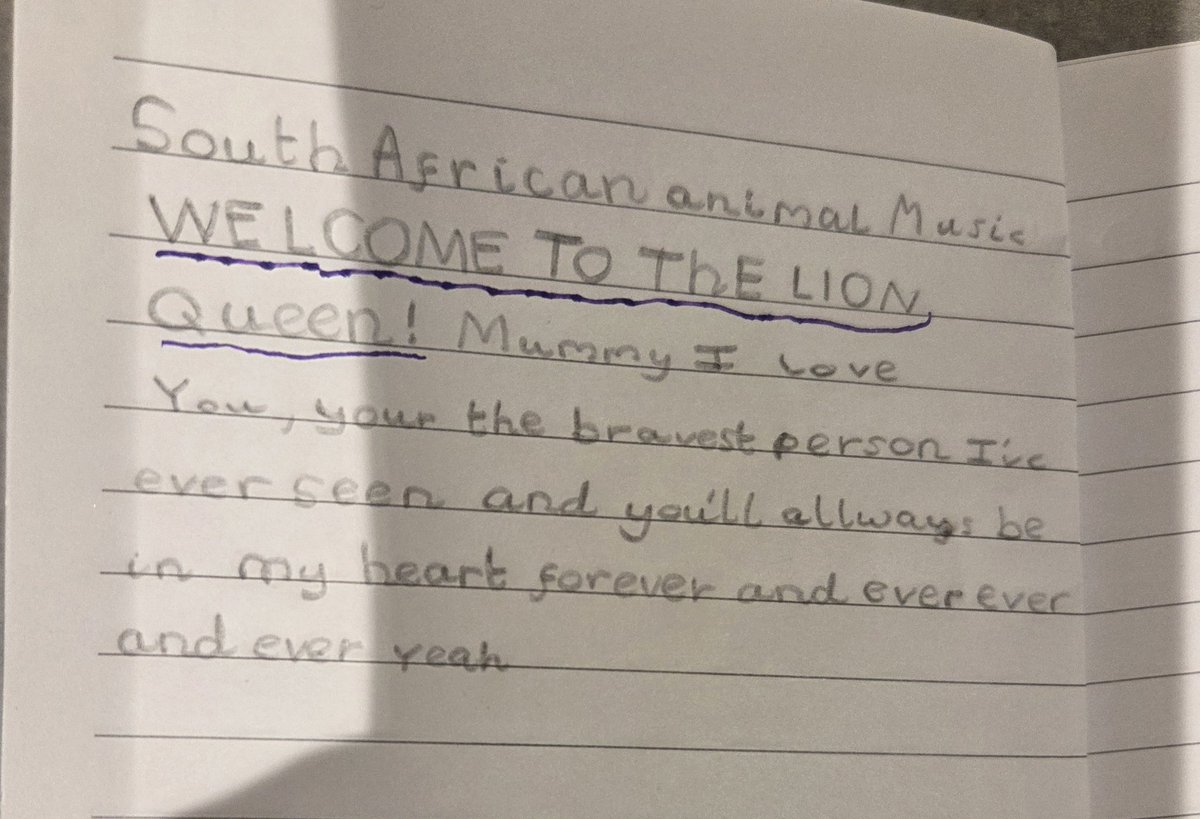 South African animal Music
WELCOME TO ThE LION
Queen! Mummy I Love
You, your the bravest person I've
ever seen and you'll allways be
in my heart forever and ever ever
and ever yeah